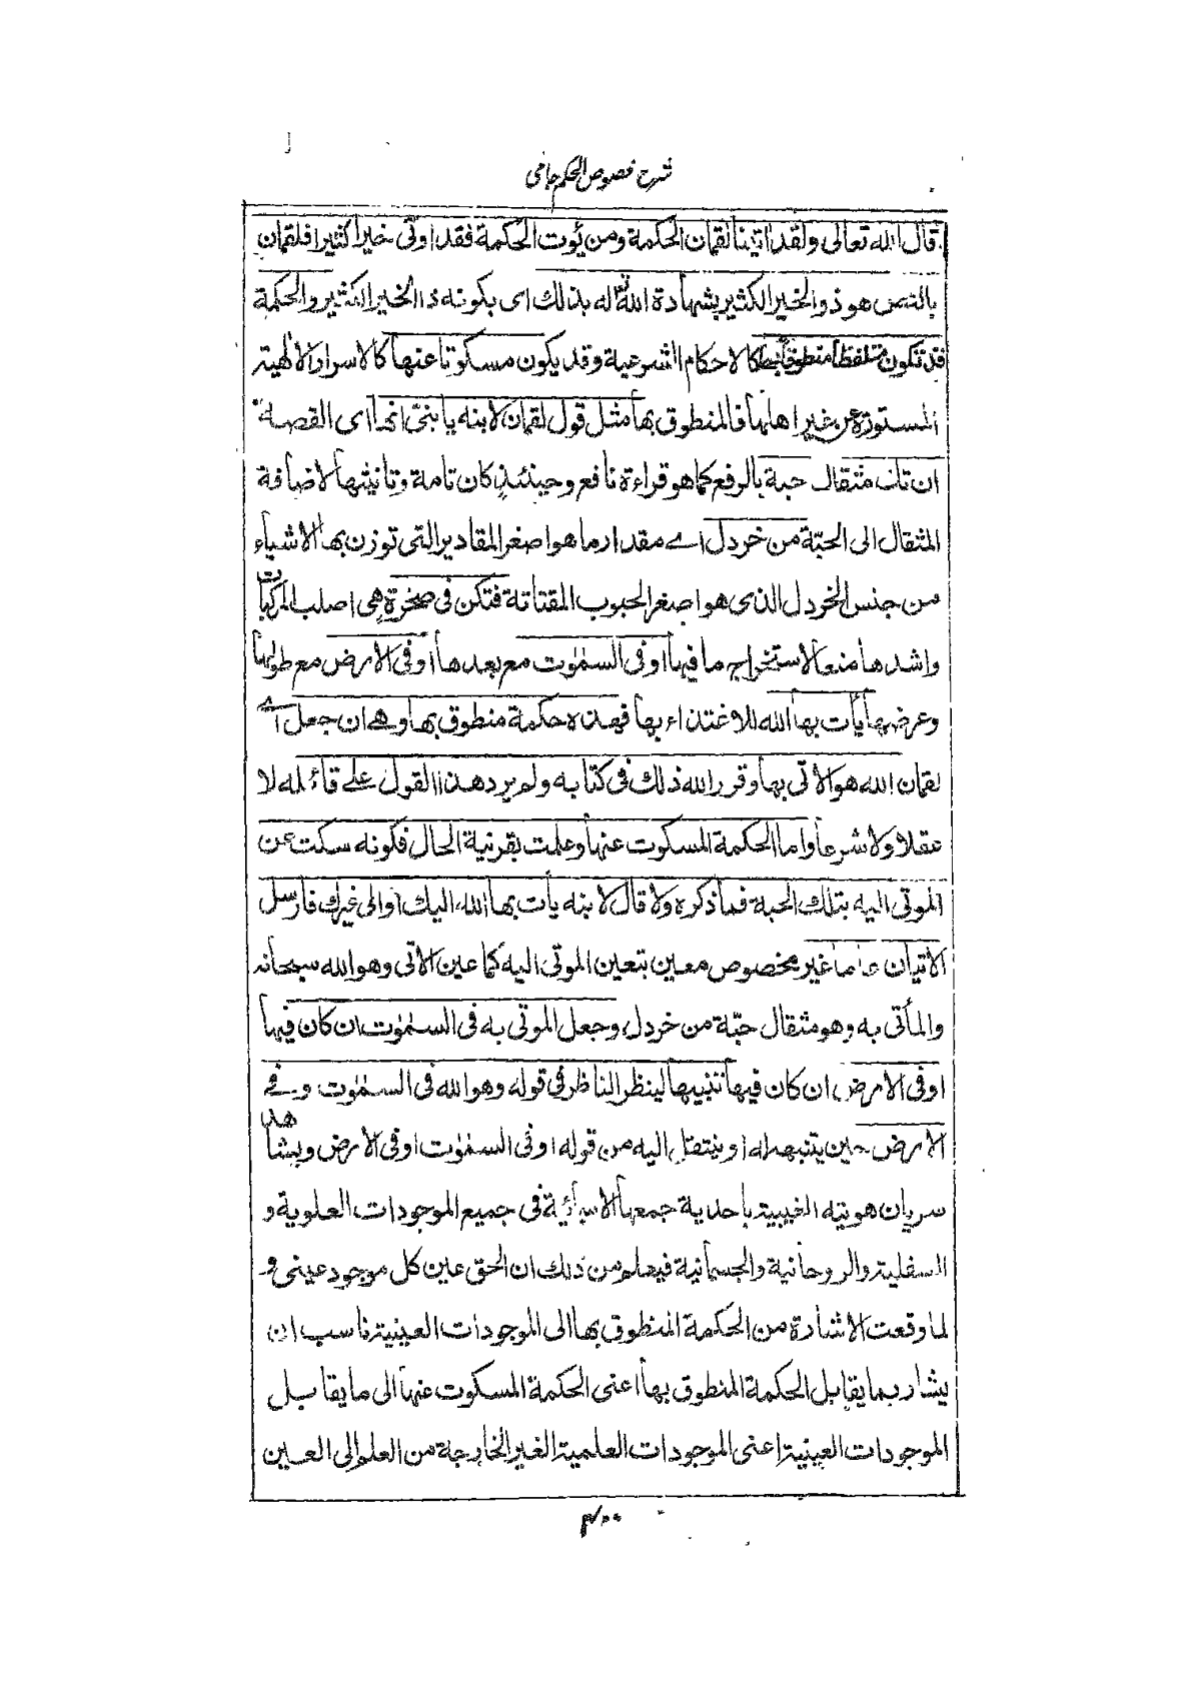 شرح فصوص الحكم جامى
قال الله تعالى ولقد اتينا لقمان الحكمة ومن يُوت الحكمة فقد اوتى خيرا كثيرا فلقمان
بالنص هو ذو الخير الكثير بشهادة الله له بذالك اى بكونه ذا الخير الكثير والحكمة
قد تكون متلفظا منطوقا بها كالاحكام الشرعية وقد يكون مسكوتا عنها كالاسرار الالهية
المستورة عن غير اهلها فالمنطوق بها مثل قول لقمان لابنه يا بنى انها اى القصة
ان تك مثقال حبة بالرفع كما هو قراءة نافع وحينئذ كان تامة وتانيثها لاضافة
المثقال الى الحبّة من خردل اے مقدار ما هو اصغر المقادير التى توزن بها الاشياء
من جنس الخردل الذى هو اصغر الحبوب المقتاتة فتكن فى صخرة هى اصلب المركبات
واشدها منعا لاستخراج ما فيها او فى السمٰوت مع بعدها او فى الارض مع طولها
وعرضها يأت بها الله للاغتذاء بها فهذه حكمة منطوق بها وهے ان جعل اے
لقمان الله هو الاتى بها وقرر الله ذلك فى كتابه ولم يرد هذا القول علے قائله لا
عقلا ولا شرعا واما الحكمة المسكوت عنها وعلمت بقرنية الحال فكونه سكت عن
الموتى اليه بتلك الحبة فما ذكره ولا قال لابنه يأت بها الله اليك او الى غيرك فارسل
الاتيان عاما غير مخصوص معين بتعين الموتى اليه كما عين الاتى وهو الله سبحانه
والمأتى به وهو مثقال حبّة من خردل وجعل الموتى به فى السمٰوت ان كان فيها
او فى الارض ان كان فيها تنبيها لينظر الناظر فى قوله وهو الله فى السمٰوت وفے
الارض حين يتنبه له او ينتقل اليه من قوله او فى السمٰوت او فى الارض ويشاهد
سريان هويته الغيبية باحدية جمعها الاسمائية فى جميع الموجودات العلوية و
السفلية والروحانية والجسمانية فيعلم من ذلك ان الحق عين كل موجود عينى و
لما وقعت الاشارة من الحكمة المنطوق بها الى الموجودات العينية ناسب ان
يشار بما يقابل الحكمة المنطوق بها اعنى الحكمة المسكوت عنها الى ما يقابل
الموجودات العينية اعنى الموجودات العلمية الغير الخارجة من العلم الى العين